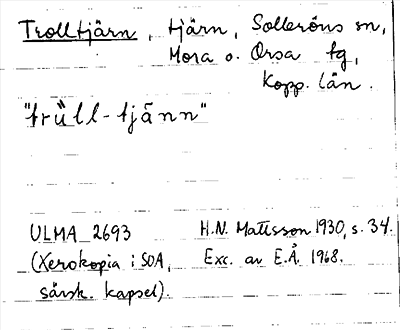 Trolltjärn, tjärn, Solleröns sn,
Mora o. Orsa tg,
Kopp. län.
"trùll-tjänn"
ULMA 2693 H.N. Mattsson 1930, s. 34.
(Xerokopia i SOA, Exc. av E.Å. 1968.
särsk. kapsel).